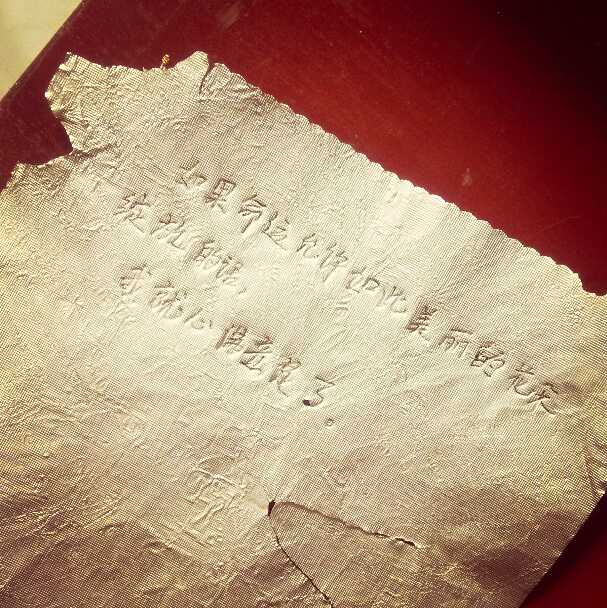 如果命运允许如此美丽的花
绽放的话,
我就心满意足了。